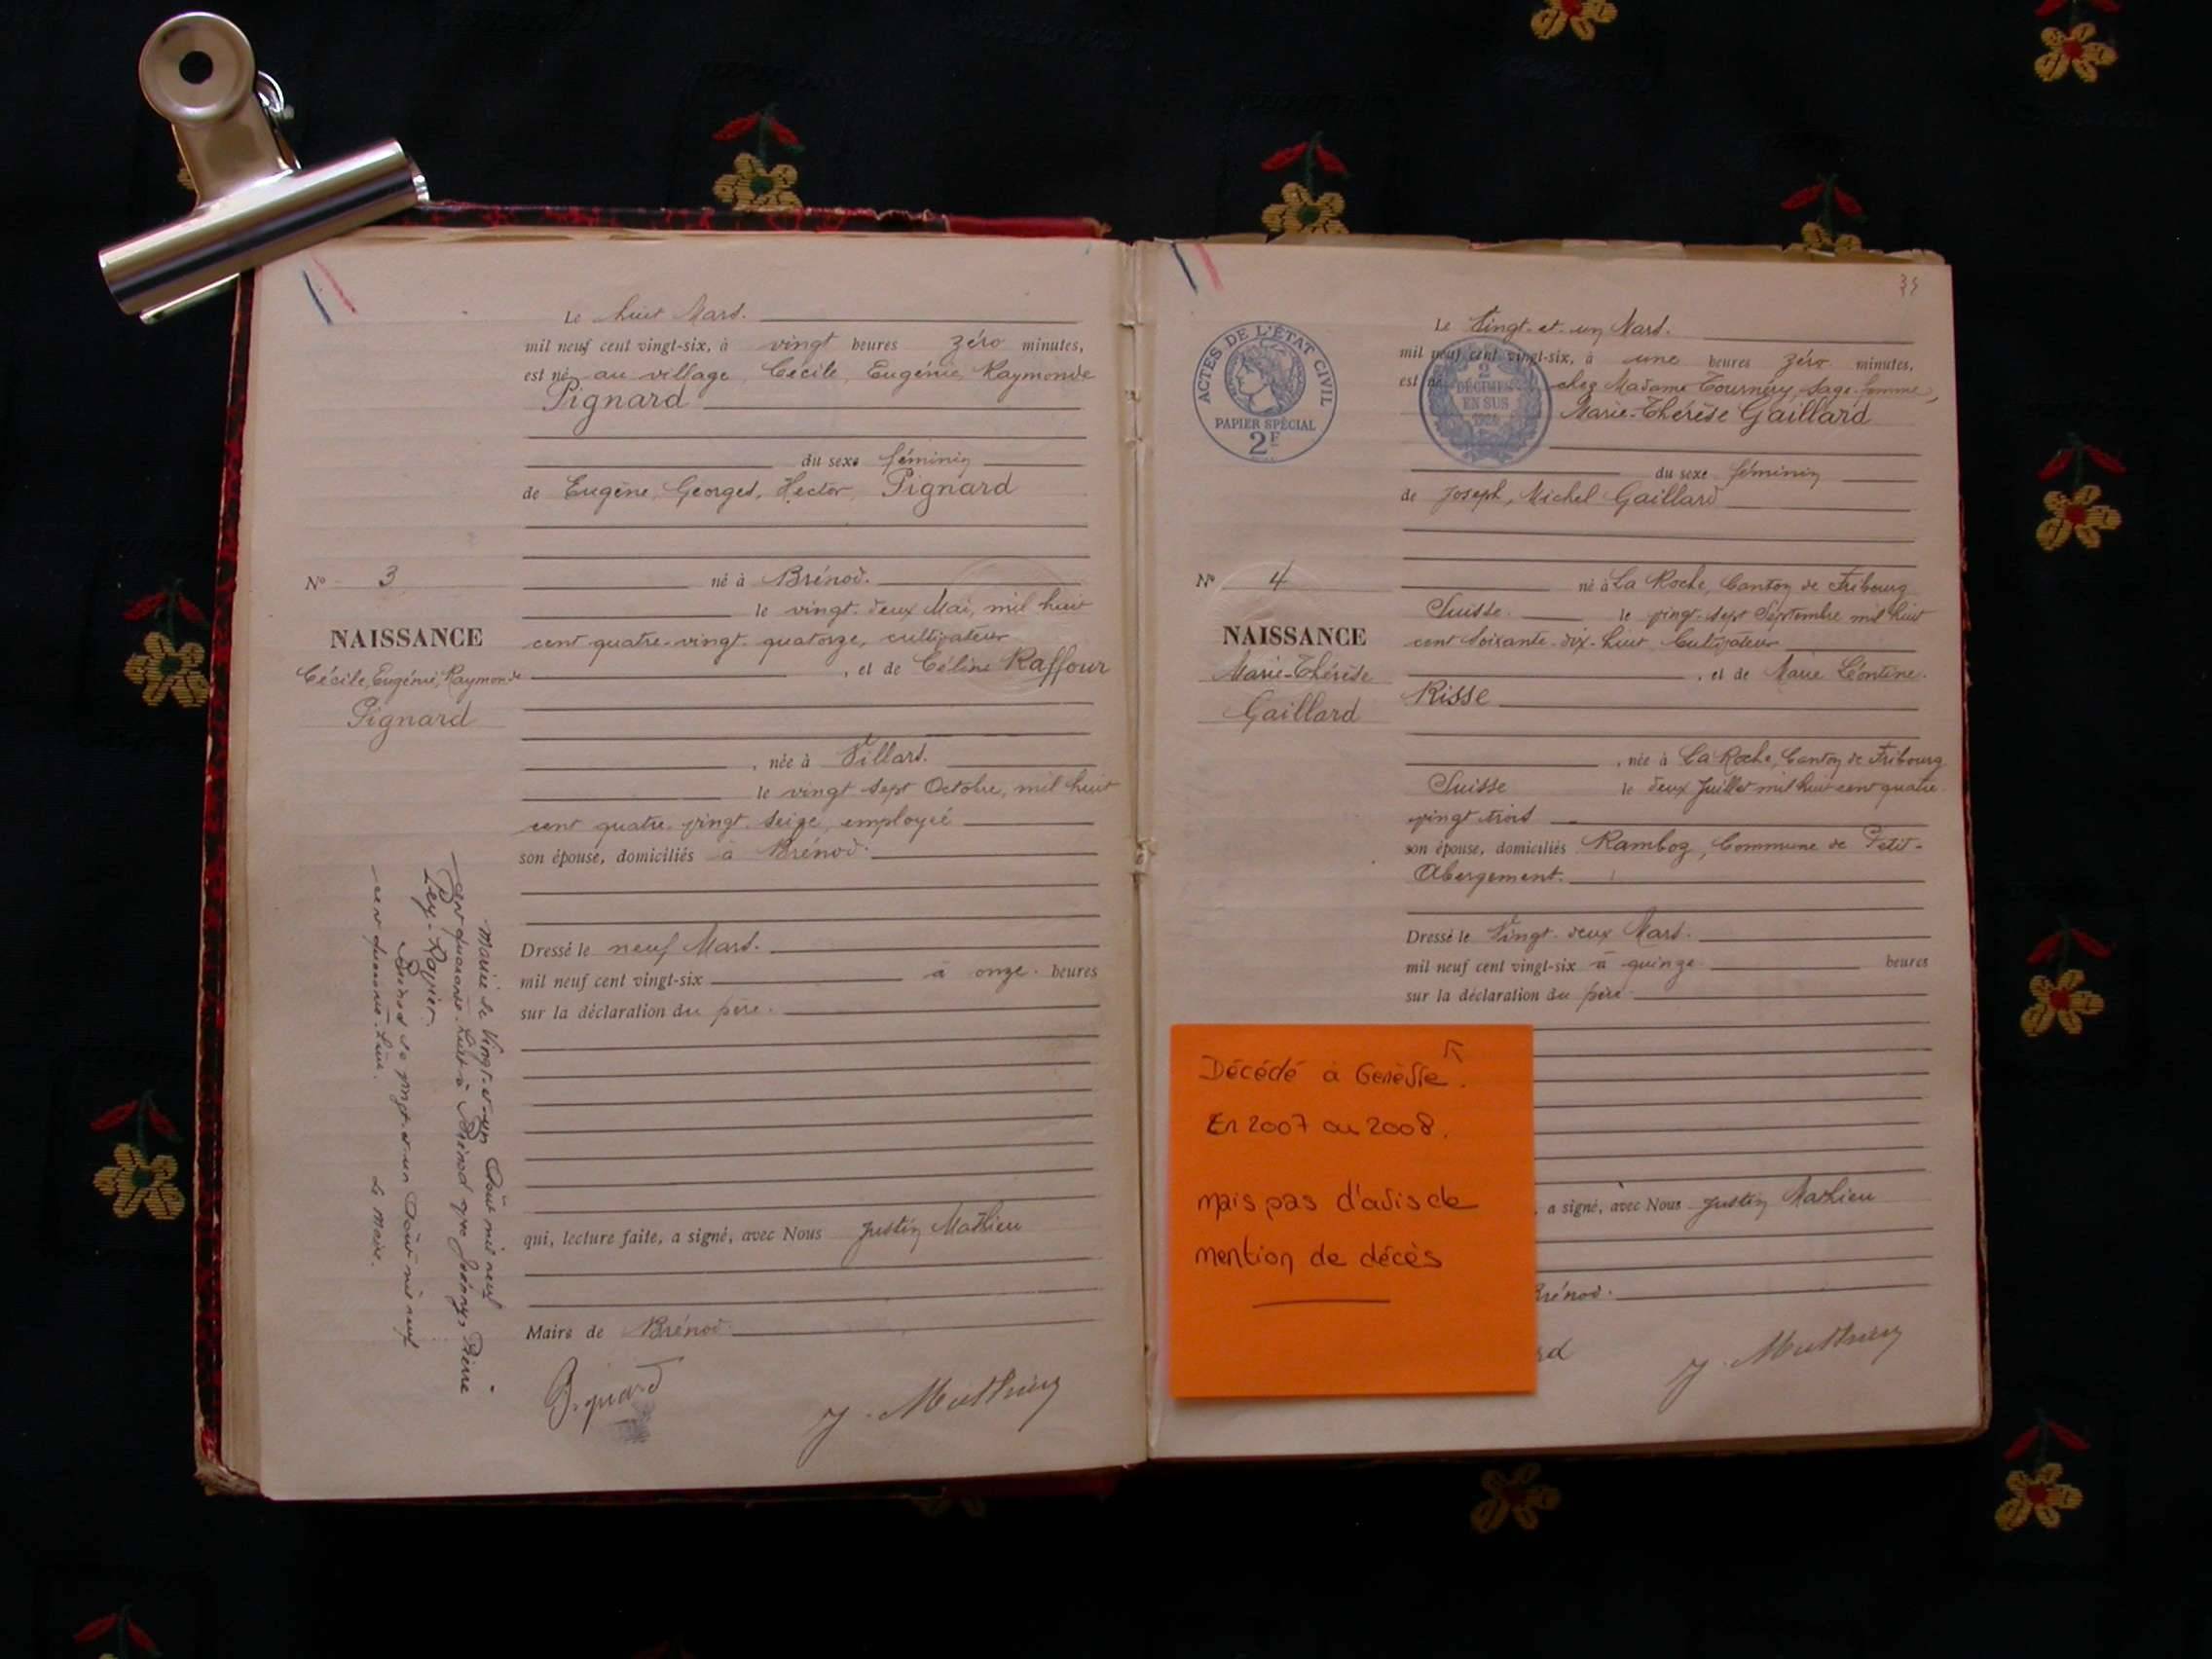 Le huit Mars.
mil neuf cent vingt-six, à vingt heures zéro minutes,
est né au village, Cécile, Eugénie, Raymonde
Pignard
du sexe féminin
de Eugène, Georges, Hector, Pignard
né à Brénod.
le vingt-deux Mai, mil huit
cent quatre-vingt-quatorze, cultivateur
, et de Céline Raffour
, née à Villars.
le vingt sept Octobre, mil huit
cent quatre-vingt-seize, employée
son épouse, domiciliés à Brénod.
Dressé le neuf Mars.
mil neuf cent vingt-six à onze heures
sur la déclaration du père.
qui, lecture faite, a signé, avec Nous Justin Mathieu
Maire de Brénod
Pignard
J. Mathieu
N° 3
NAISSANCE
Cécile, Eugénie, Raymonde
Pignard
Mariée le Vingt-et-un Août mil neuf
cent quarante-huit à Brénod avec Pierre
Brénod le vingt-et-un Août mil neuf
cent quarante-huit. Le Maire.
35
ACTES DE L'ÉTAT CIVIL
PAPIER SPÉCIAL
2F
2
DÉCIMES
EN SUS
Le Vingt-et-un Mars.
mil neuf cent vingt-six, à une heures zéro minutes,
est né chez Madame Tournéry, sage-femme,
Marie-Thérèse Gaillard
du sexe féminin
de Joseph, Michel Gaillard
né à La Roche, Canton de Fribourg
Suisse. le vingt-sept Septembre mil huit
cent soixante-dix-huit Cultivateur
, et de Marie Léontine
Risse
, née à La Roche, Canton de Fribourg
Suisse le deux Juillet mil huit cent quatre
vingt trois
son épouse, domiciliés Ramboz, Commune de Petit-
Abergement.
Dressé le Vingt-deux Mars.
mil neuf cent vingt-six à quinze heures
sur la déclaration du père
, a signé, avec Nous Justin Mathieu
Brénod.
rd
J. Mathieu
N° 4
NAISSANCE
Marie-Thérèse
Gaillard
Décédé à Genève.
En 2007 ou 2008.
mais pas d'avis de
mention de décès